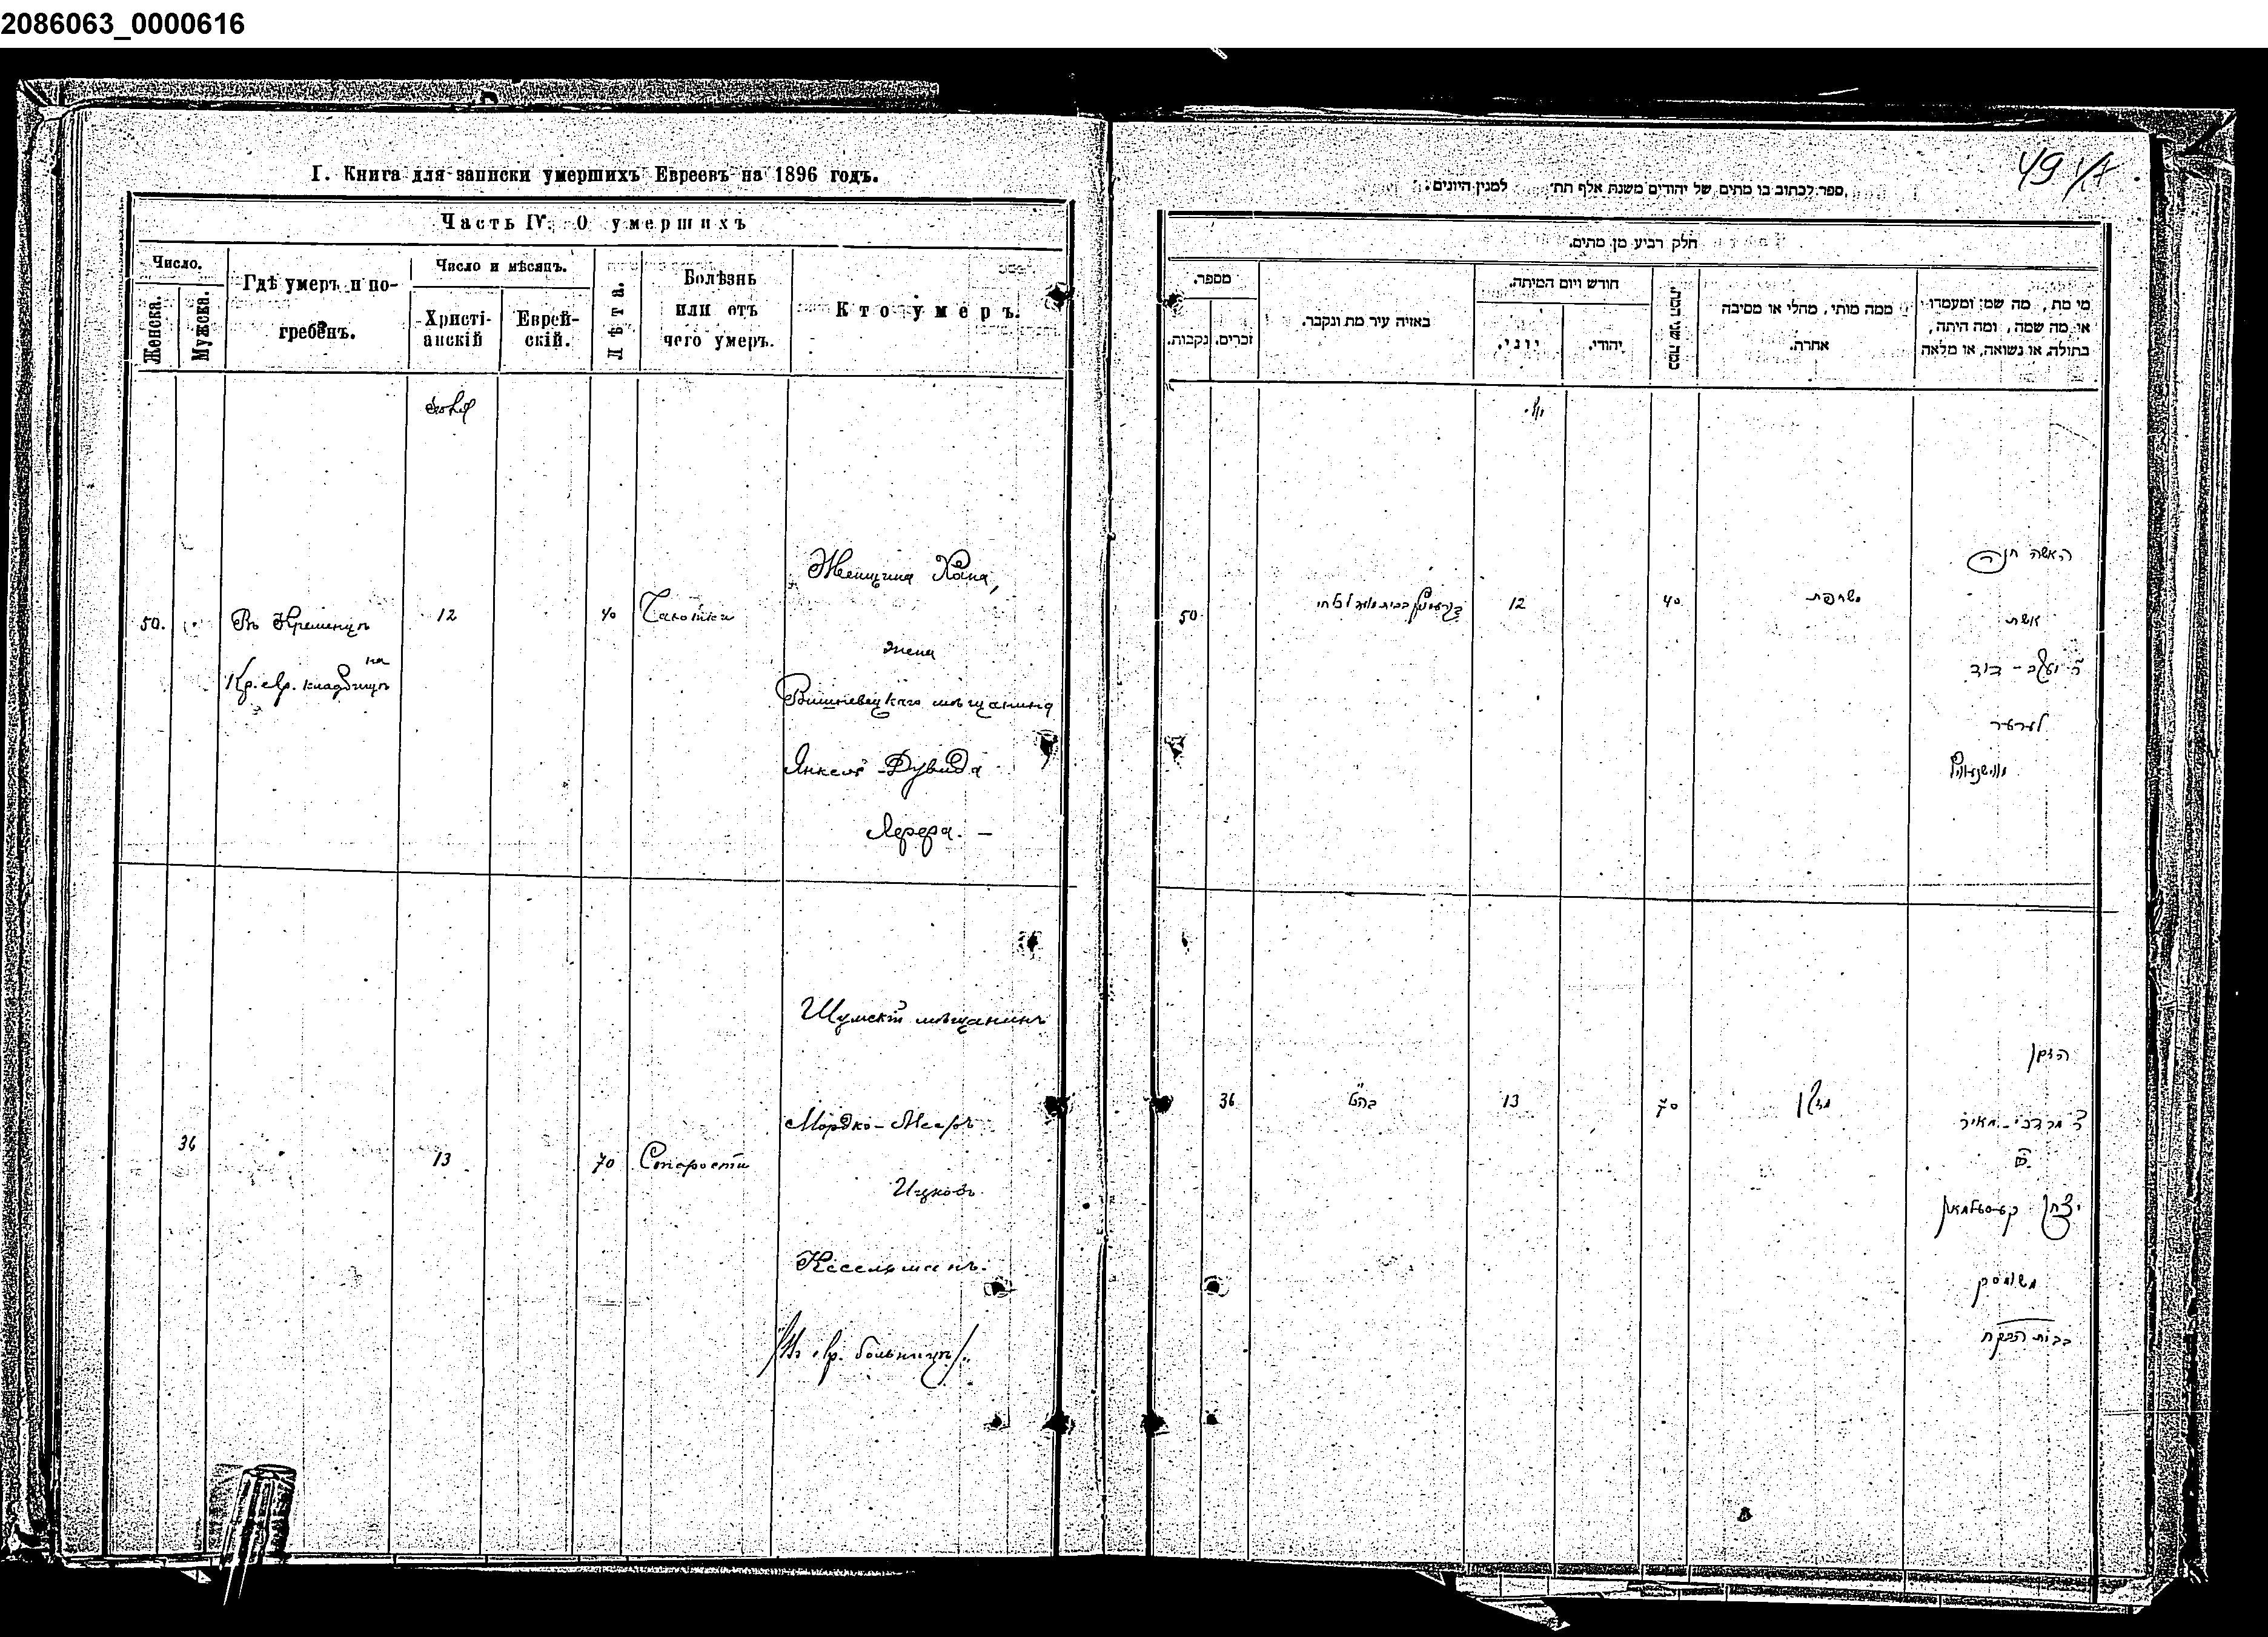 2086063_0000616
I. Книга для записки умершихъ Евреевъ на 1896 годъ.
Часть IV. О умершихъ
Число.
Женска.
Мужска.
Гдѣ умеръ и по-
гребенъ.
Число и мѣсяцъ.
Христі-
анскій
Еврей-
скій.
Лѣта.
Болѣзнь
или отъ
чего умеръ.
Кто умеръ.
50.
Въ Кременцѣ
на
Кр. евр. кладбищѣ
12
40
Чахотки
Женщина Хана,
жена
Вишневецкаго мѣщанина
Янкель-Дувида
Лерера. —
36
13
70
Старости
Шумскій мѣщанинъ
Мордко-Мееръ
Ицковъ
Кесельманъ.
/Въ евр. больницѣ/.
49
ספר לכתוב בו מתים של יהודים משנת אלף תת׳ למנין היונים.
חלק רביע מן מתים.
מספר.
נקבות.
זכרים.
באיזה עיר מת ונקבר.
חודש ויום המיתה.
יוני.
יהודי.
כמה שני המת.
ממה מותי, מחלי או מסיבה
אחרת.
מי מת, מה שמו ומעמדו
או מה שמה, ומה היתה,
בתולה או נשואה, או מלאה
50
12
40
האשה חנה
אשת
דוד
לערער
36
13
70
הזקן
ר׳ מרדכי-מאיר
יצחק קעסעלמאן
משומסק